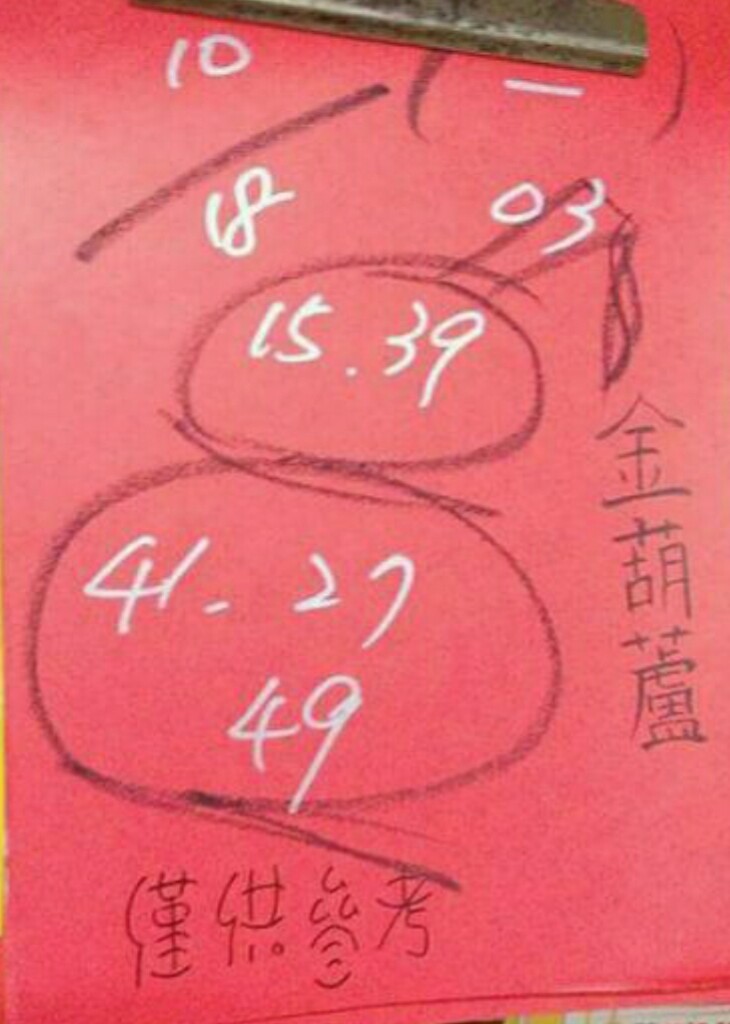 10
(一)
18
03
15.39
41-27
49
金葫蘆
僅供參考